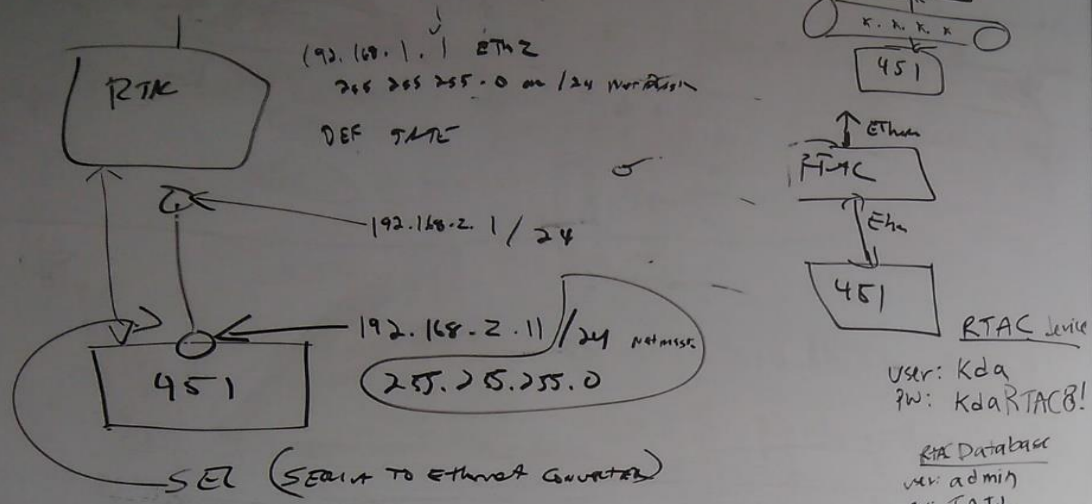 192.168.1.1 ETH 2
255 255 255.0 or /24 Netmask
DEF GATE
RTAC
192.168.2.1/24
192.168.2.11/24 Netmask
255.255.255.0
451
SEL (SERIAL TO Ethernet CONVERTER)
x. x. x. x
451
Ethern
RTAC
Eth
451
RTAC device
user: Kda
PW: KdaRTAC8!
RTAC Database
user: admin